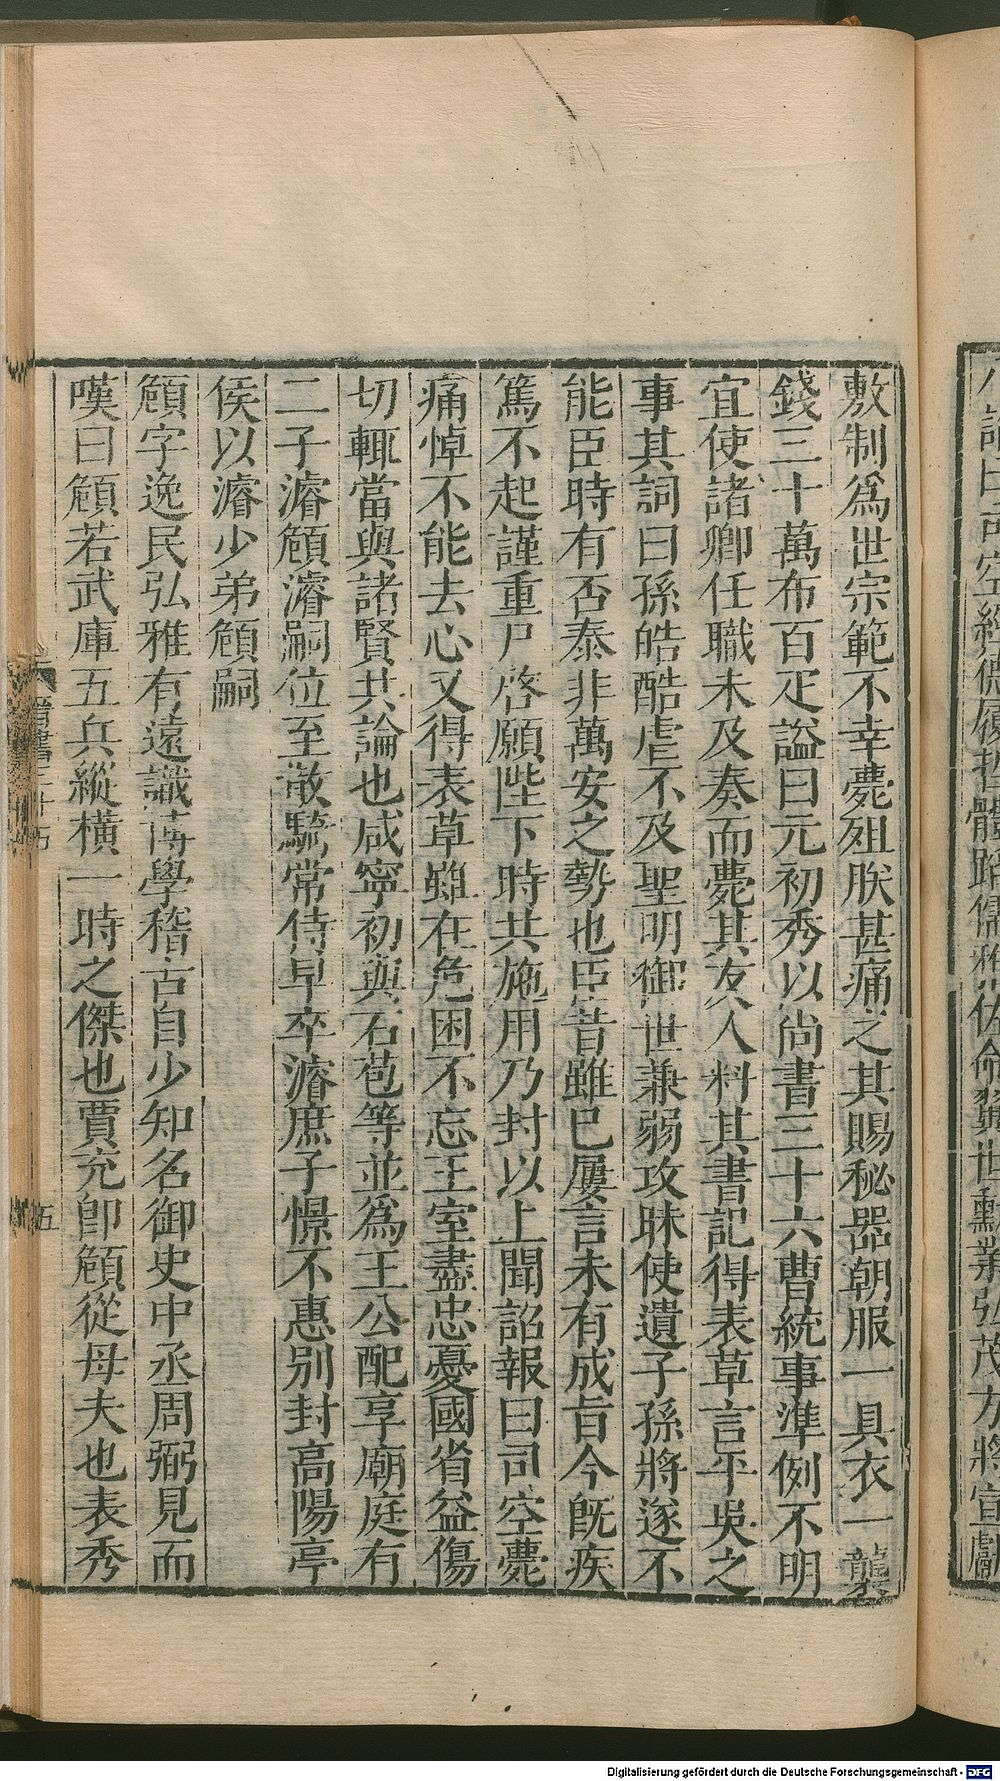 敷制為世宗範不幸薨殂朕甚痛之其賜秘器朝服一具衣一襲
錢三十萬布百疋謚曰元初秀以尚書三十六曹統事準例不明
宜使諸卿任職未及奏而薨其友人料其書記得表草言平吳之
事其詞曰孫皓酷虐不及聖明御世兼弱攻昧使遺子孫將遂不
能臣時有否泰非萬安之勢也臣昔雖已屢言未有成旨今既疾
篤不起謹重尸啓願陛下時共施用乃封以上聞詔報曰司空薨
痛悼不能去心又得表草雖在危困不忘王室盡忠憂國省益傷
切輒當與諸賢共論也咸寧初與石苞等並為王公配享廟庭有
二子濬頠濬嗣位至散騎常侍早卒濬庶子憬不惠別封高陽亭
侯以濬少弟頠嗣
頠字逸民弘雅有遠識博學稽古自少知名御史中丞周弼見而
嘆曰頠若武庫五兵縱橫一時之傑也賈充即頠從母夫也表秀
五
Digitalisierung gefördert durch die Deutsche Forschungsgemeinschaft - DFG